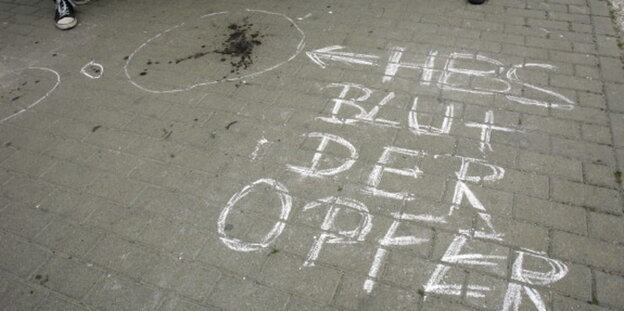 HBS
BLUT
DER
OPFER